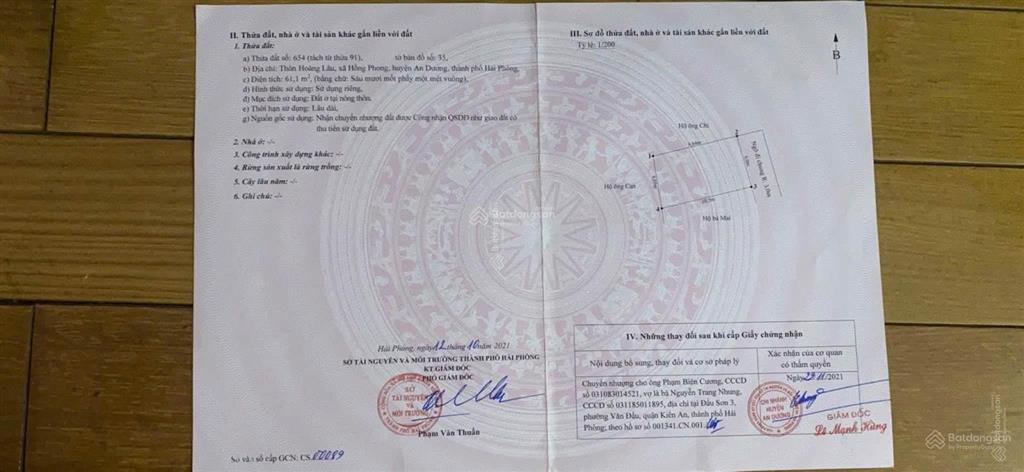 II. Thửa đất, nhà ở và tài sản khác gắn liền với đất
1. Thửa đất:
a) Thửa đất số: 654 (tách từ thửa 91), tờ bản đồ số: 35,
b) Địa chỉ: Thôn Hoàng Lâu, xã Hồng Phong, huyện An Dương, thành phố Hải Phòng,
c) Diện tích: 61,1 m², (bằng chữ: Sáu mươi mốt phẩy một mét vuông),
d) Hình thức sử dụng: Sử dụng riêng,
đ) Mục đích sử dụng: Đất ở tại nông thôn,
e) Thời hạn sử dụng: Lâu dài,
g) Nguồn gốc sử dụng: Nhận chuyển nhượng đất được Công nhận QSDĐ như giao đất có
thu tiền sử dụng đất.
2. Nhà ở: -/-
3. Công trình xây dựng khác: -/-
4. Rừng sản xuất là rừng trồng: -/-
5. Cây lâu năm: -/-
6. Ghi chú: -/-
Hải Phòng, ngày 12 tháng 10 năm 2021
SỞ TÀI NGUYÊN VÀ MÔI TRƯỜNG THÀNH PHỐ HẢI PHÒNG
KT.GIÁM ĐỐC
PHÓ GIÁM ĐỐC
SỞ
TÀI NGUYÊN
VÀ
MÔI TRƯỜNG
Phạm Văn Thuấn
Số vào sổ cấp GCN: CS
III. Sơ đồ thửa đất, nhà ở và tài sản khác gắn liền với đất
Tỷ lệ: 1/200
B
Hộ ông Chi
1
2
Ngõ đi chung R
Hộ ông Can
3
4
Hộ bà Mai
IV. Những thay đổi sau khi cấp Giấy chứng nhận
Nội dung bổ sung, thay đổi và cơ sở pháp lý
Xác nhận của cơ quan
có thẩm quyền
Chuyển nhượng cho ông Phạm Biện Cương, CCCD
số 031083014521, vợ là bà Nguyễn Trang Nhung,
CCCD số 031185011895, địa chỉ tại Đẩu Sơn 3,
phường Văn Đẩu, quận Kiến An, thành phố Hải
Phòng; theo hồ sơ số 001341.CN.001.
Ngày 29/11/2021
CHI NHÁNH
HUYỆN
AN DƯƠNG
GIÁM ĐỐC
Lê Mạnh Hùng
Batdongsan
Batdongsan
by PropertyGuru